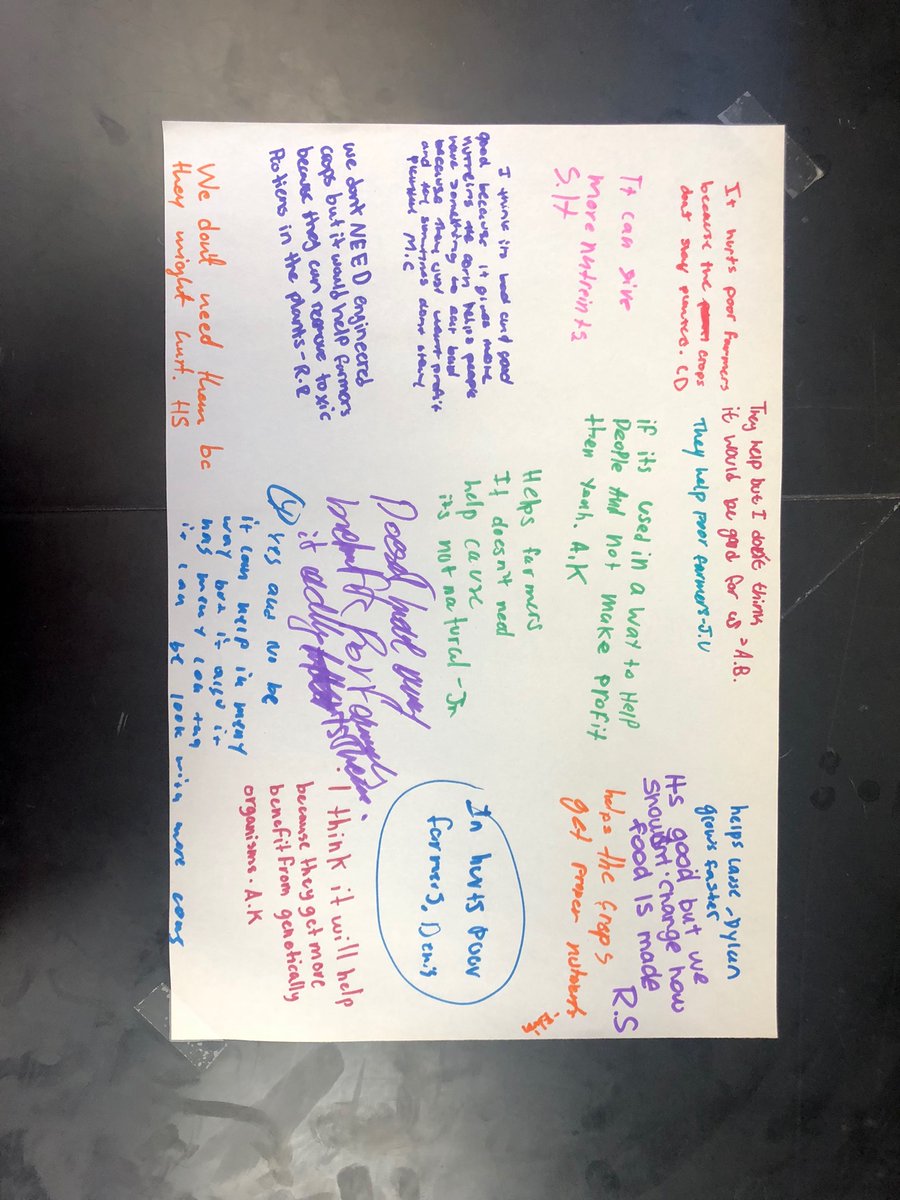 It hurts poor farmers
because the crops
dont stay permere. CD
They help but I don't think
it would be good for us - A.B.
They help poor farmers-J.V
helps cause -Dylan
grows faster
Its good but we
shouldnt change how
food is made
R.S
It can give
more nutreints
S.H
if its used in a way to Help
People And not make profit
then yeah. A.K
helps the crops
get proper
I think its bad and good
good because it gives more
nutreins the corn helps people
have something to eat bad
because they just want profit
and the sometimes dont stay
M.C
Helps farmers
It doesn't need
help cause
its not natural - Jn
In hurts poor
farmers. Denis
we dont NEED engineered
crops but it would help farmers
because they can remove toxic
Protiens in the plants - R.R
Doesn't
it
I think it will help
because they get more
benefit from genetically
organisms. A.K
We don't need them bc
they might hurt. HS
Yes and No be
it can help in meny
way but it also it
has meny con tag
it can be look with more cons